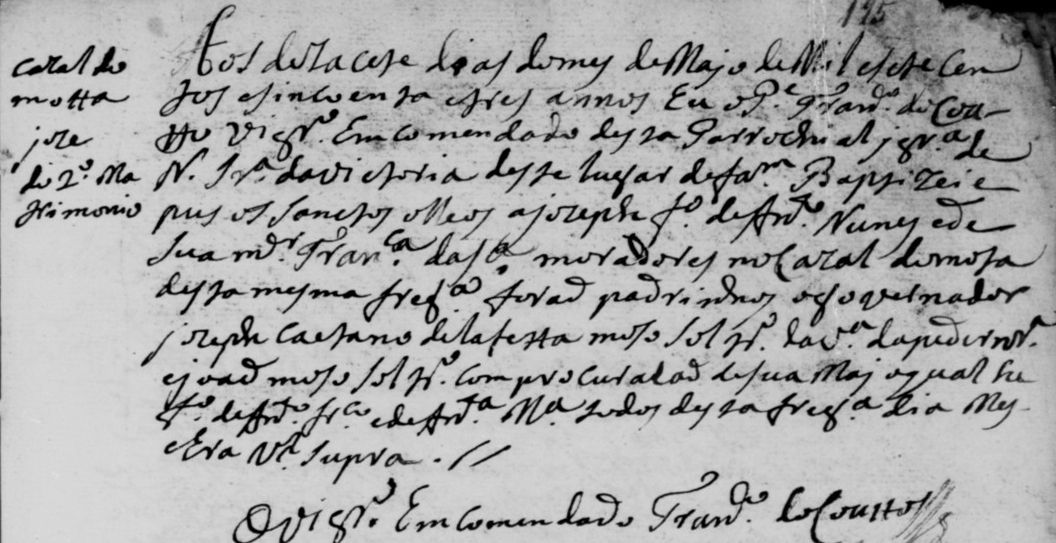 195
Cazal do
motta
joze
do 2.º Ma
trimonio
Aos dezacete dias do mes de Majo de Mil e sete cen
tos e sincoenta e tres annos Eu o P.e Fran.co do Cou-
tto Vigr.º Emcomendado desta Parrochial Igr.a de
N. Sr.a da victoria deste lugar de fam.am Baptizei e
pus os Sanctos olleos a joseph f.º de Ant.º Nunes e de
sua m.er Fran.ca da S.a moradores no Cazal do mota
desta mesma freg.a foraõ padrinhos o governador
joseph Caetano de la fetta moso soltr.º da v.a da pedrnr.a
e joaõ moso soltr.º com procurasaõ de sua Maj o qual he
f.º de Ant.º fr.co e de Ant.a M.a todos desta freg.a dia Mes
e Era Vt supra . //
O vigr.º Emcomendado Fran.co do Coutto